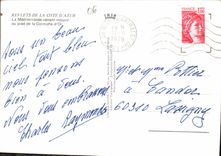 REFLETS DE LA COTE D'AZUR
La Méditerranée venant mourir
au pied de la Corniche d'Or
Sous un beau
ciel tout bleu
nous pensons
bien à vous.
Nous vous embrassons
Charles Raymonde
FRANCE
Pottier
à Candor
60310 Lassigny